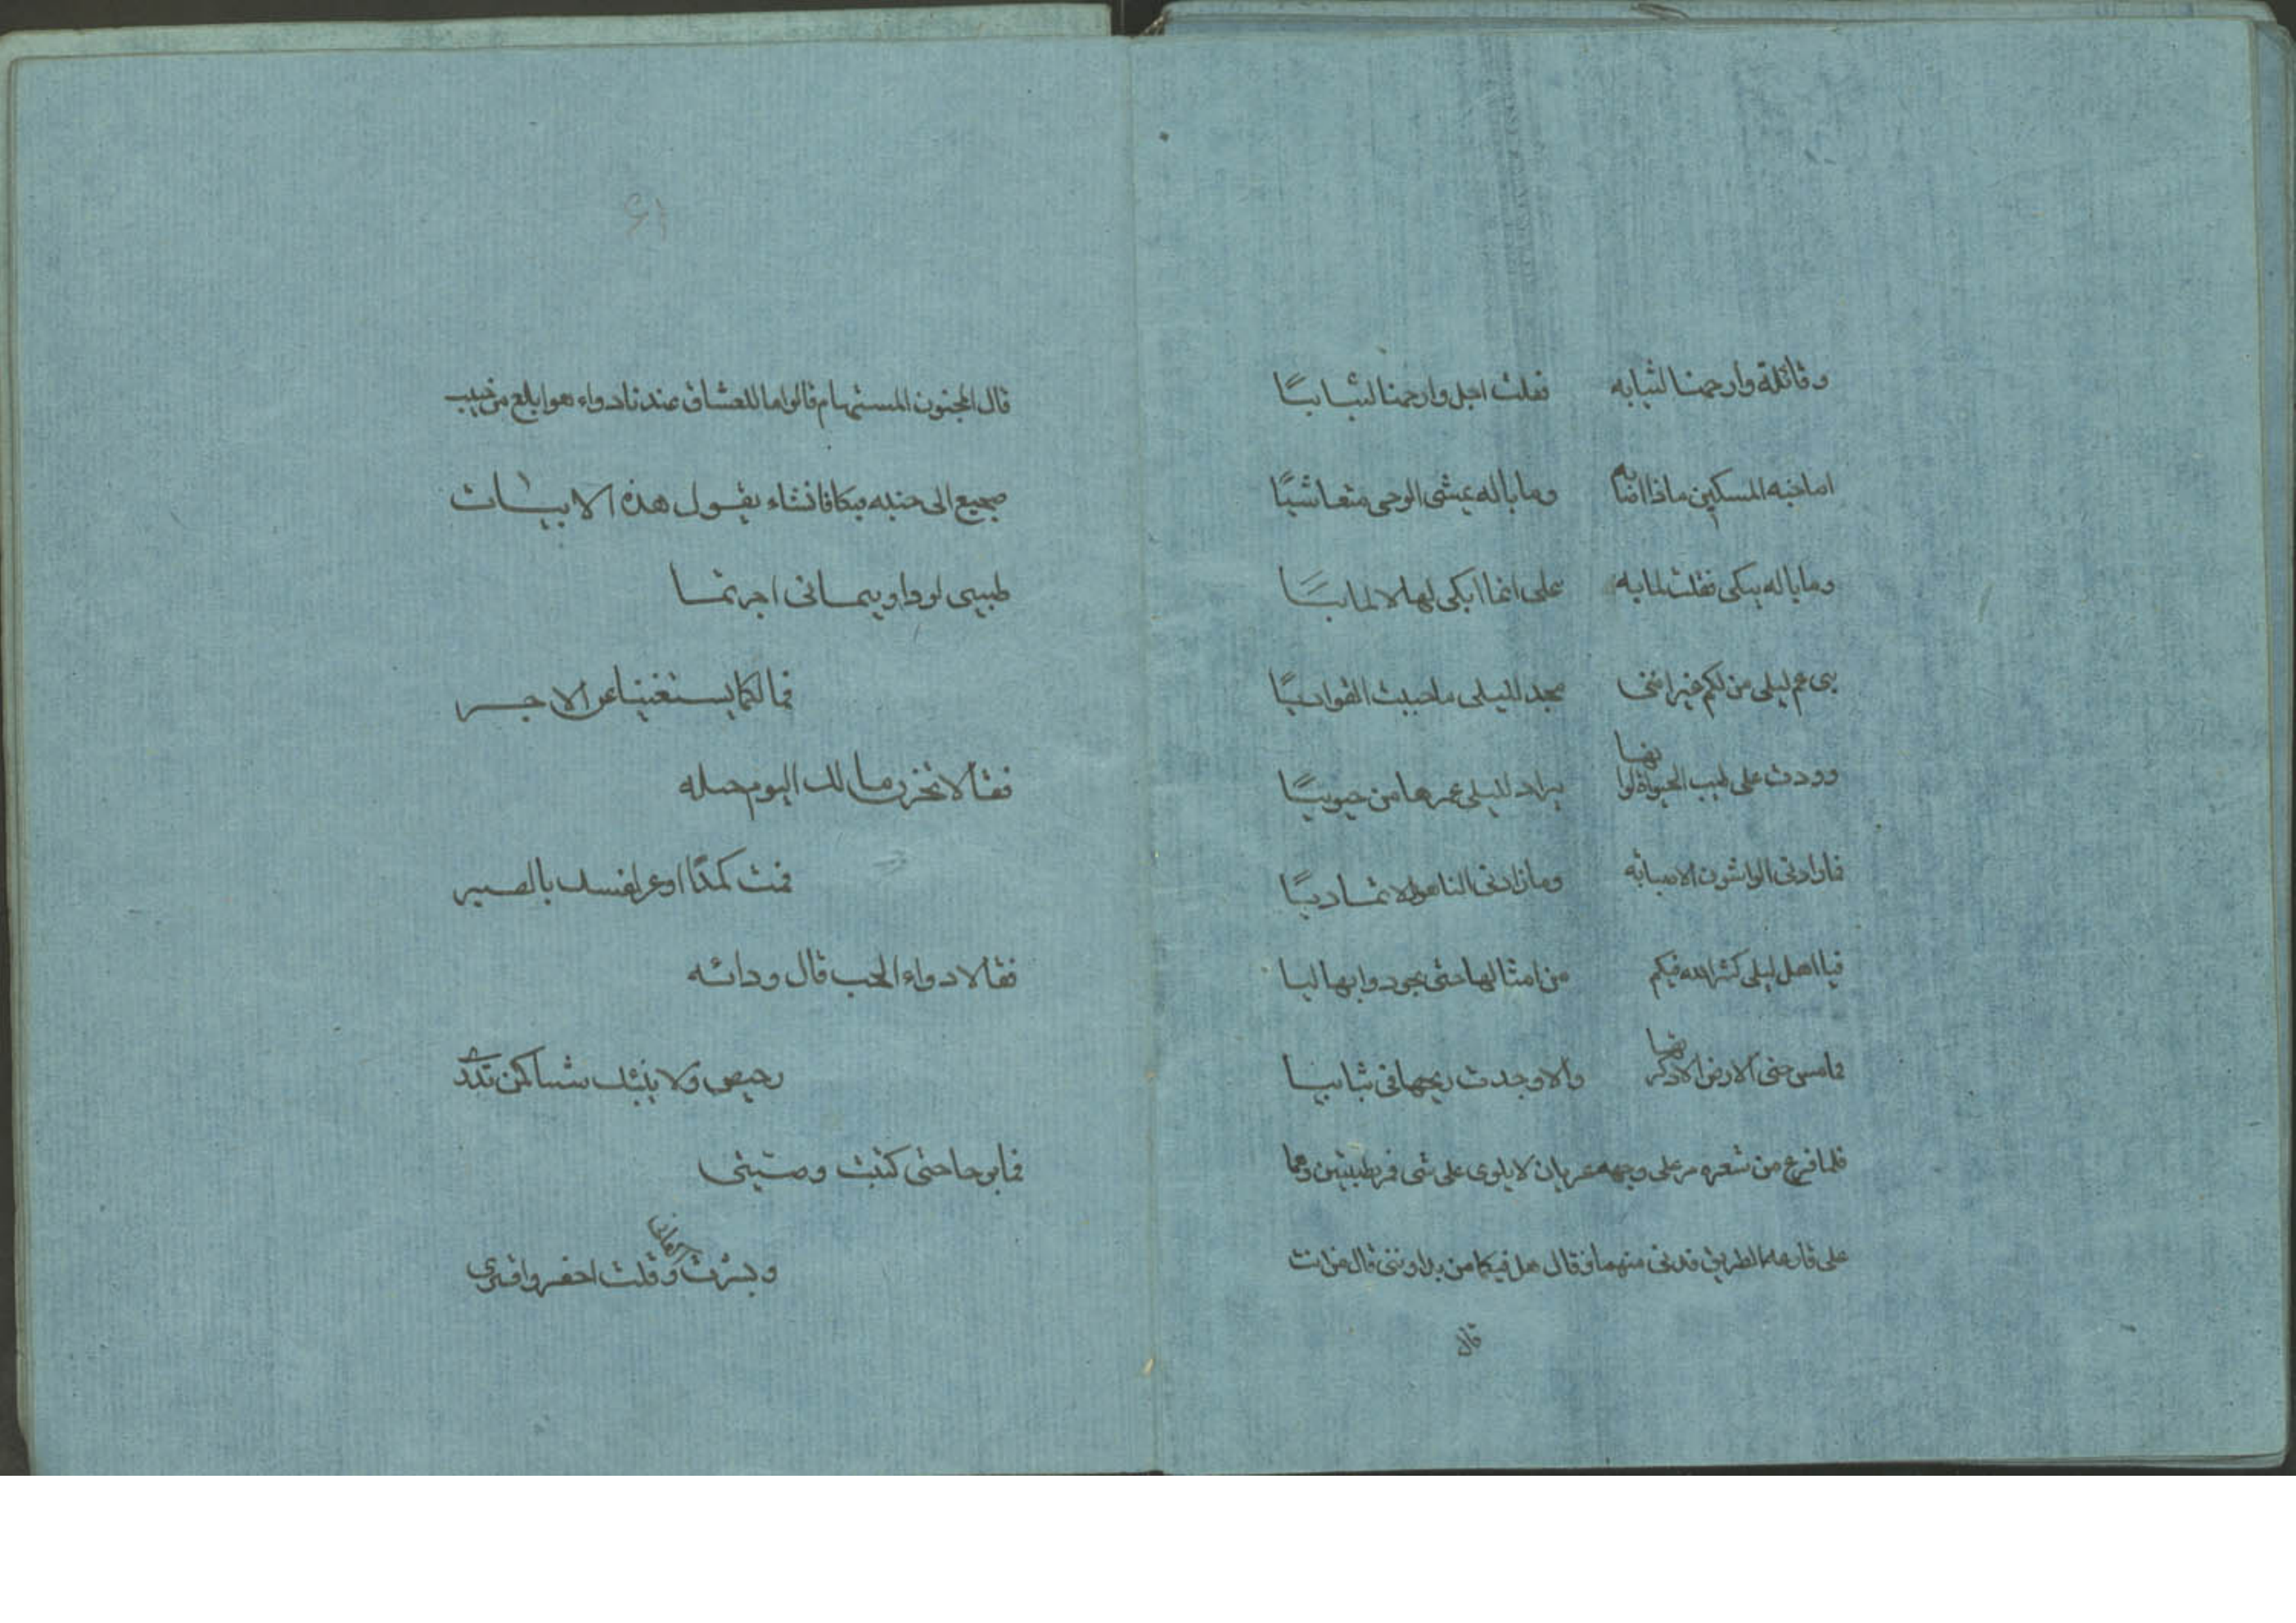 وقائلة وارحمنا لشبابه فقلت اجل وارحمنا لشبابيًا
اما خبه المسكين ماذا اضابه وما باله يمشى الوجى متعاشيًا
وما باله يبكى فقلت لما به على انما ابكى لها لا لما بيًا
بى عم ليلى من لكم غير اننى مجد لليلى ما حييت القوافيًا
وودت على طيب الحيوة لوانها يزاد لليلى عمرها من حيوتيًا
فما زادنى الواشون الا صبابه وما زادنى الناهون الا تماديًا
فيا اهل ليلى كثر الله فيكم من امثالها حتى يجودوا بها ليا
فما مس جنى الارض الا ذكرتها والا وجدت ريحها فى ثيابيا
فلما فرغ من شعره مر على وجهه عريان لا يلوى على شى فمر بطبيبين وهما
على قارعه الطريق فدنى منهما فقال هل فيكما من يداويننى قال من انت
قال
٤١
قال المجنون المستهام قالوا ما للعشاق عندنا دواء هو ابلغ من حبيب
ضجيع الى جنبه فبكا فانشاء يقول هذه الابيات
طبيبى لو داويتمانى اجرتما
فما لكما يستغنيا عن الاجر
فقالا تحزن ما لك اليوم حيله
فمت كمدًا او عز نفسك بالصبر
فقالا دواء الحب قال ودائه
رخيص ولا ينبئك شيا كمن يدرى
فما برحا حتى كتبت وصيتى
ونشرت اكفانى وقلت احفروا قبرى